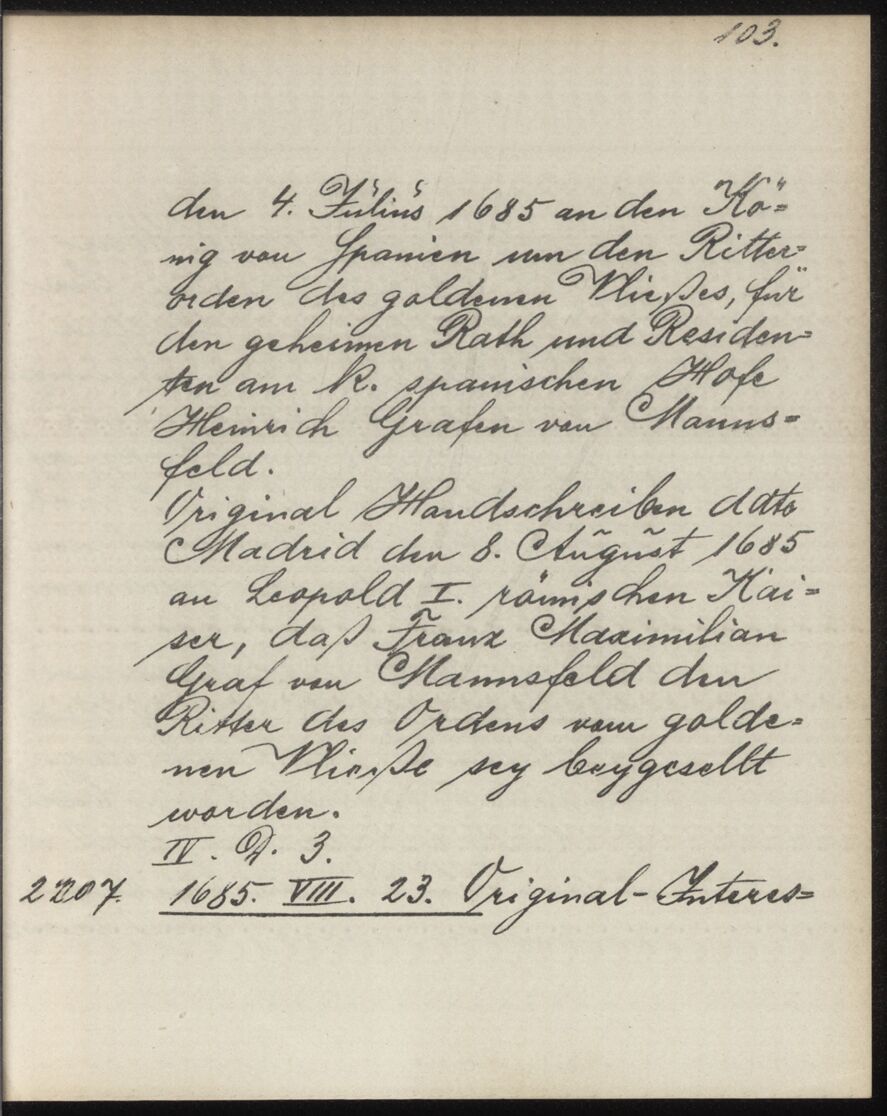 103.
den 4. Julius 1685 an den Kö=
nig von Spanien um den Ritter=
orden des goldenen Vließes, für
den geheimen Rath und Residen=
ten am k. spanischen Hofe
Heinrich Grafen von Manns=
feld.
Original Handschreiben ddto
Madrid den 8. August 1685
an Leopold I. römischen Kai=
ser, daß Franz Maximilian
Graf von Mannsfeld den
Ritter des Ordens vom golde=
nen Vließe sey beygesellt
worden.
IV. D. 3.
2207. 1685. VIII. 23. Original-Interes=